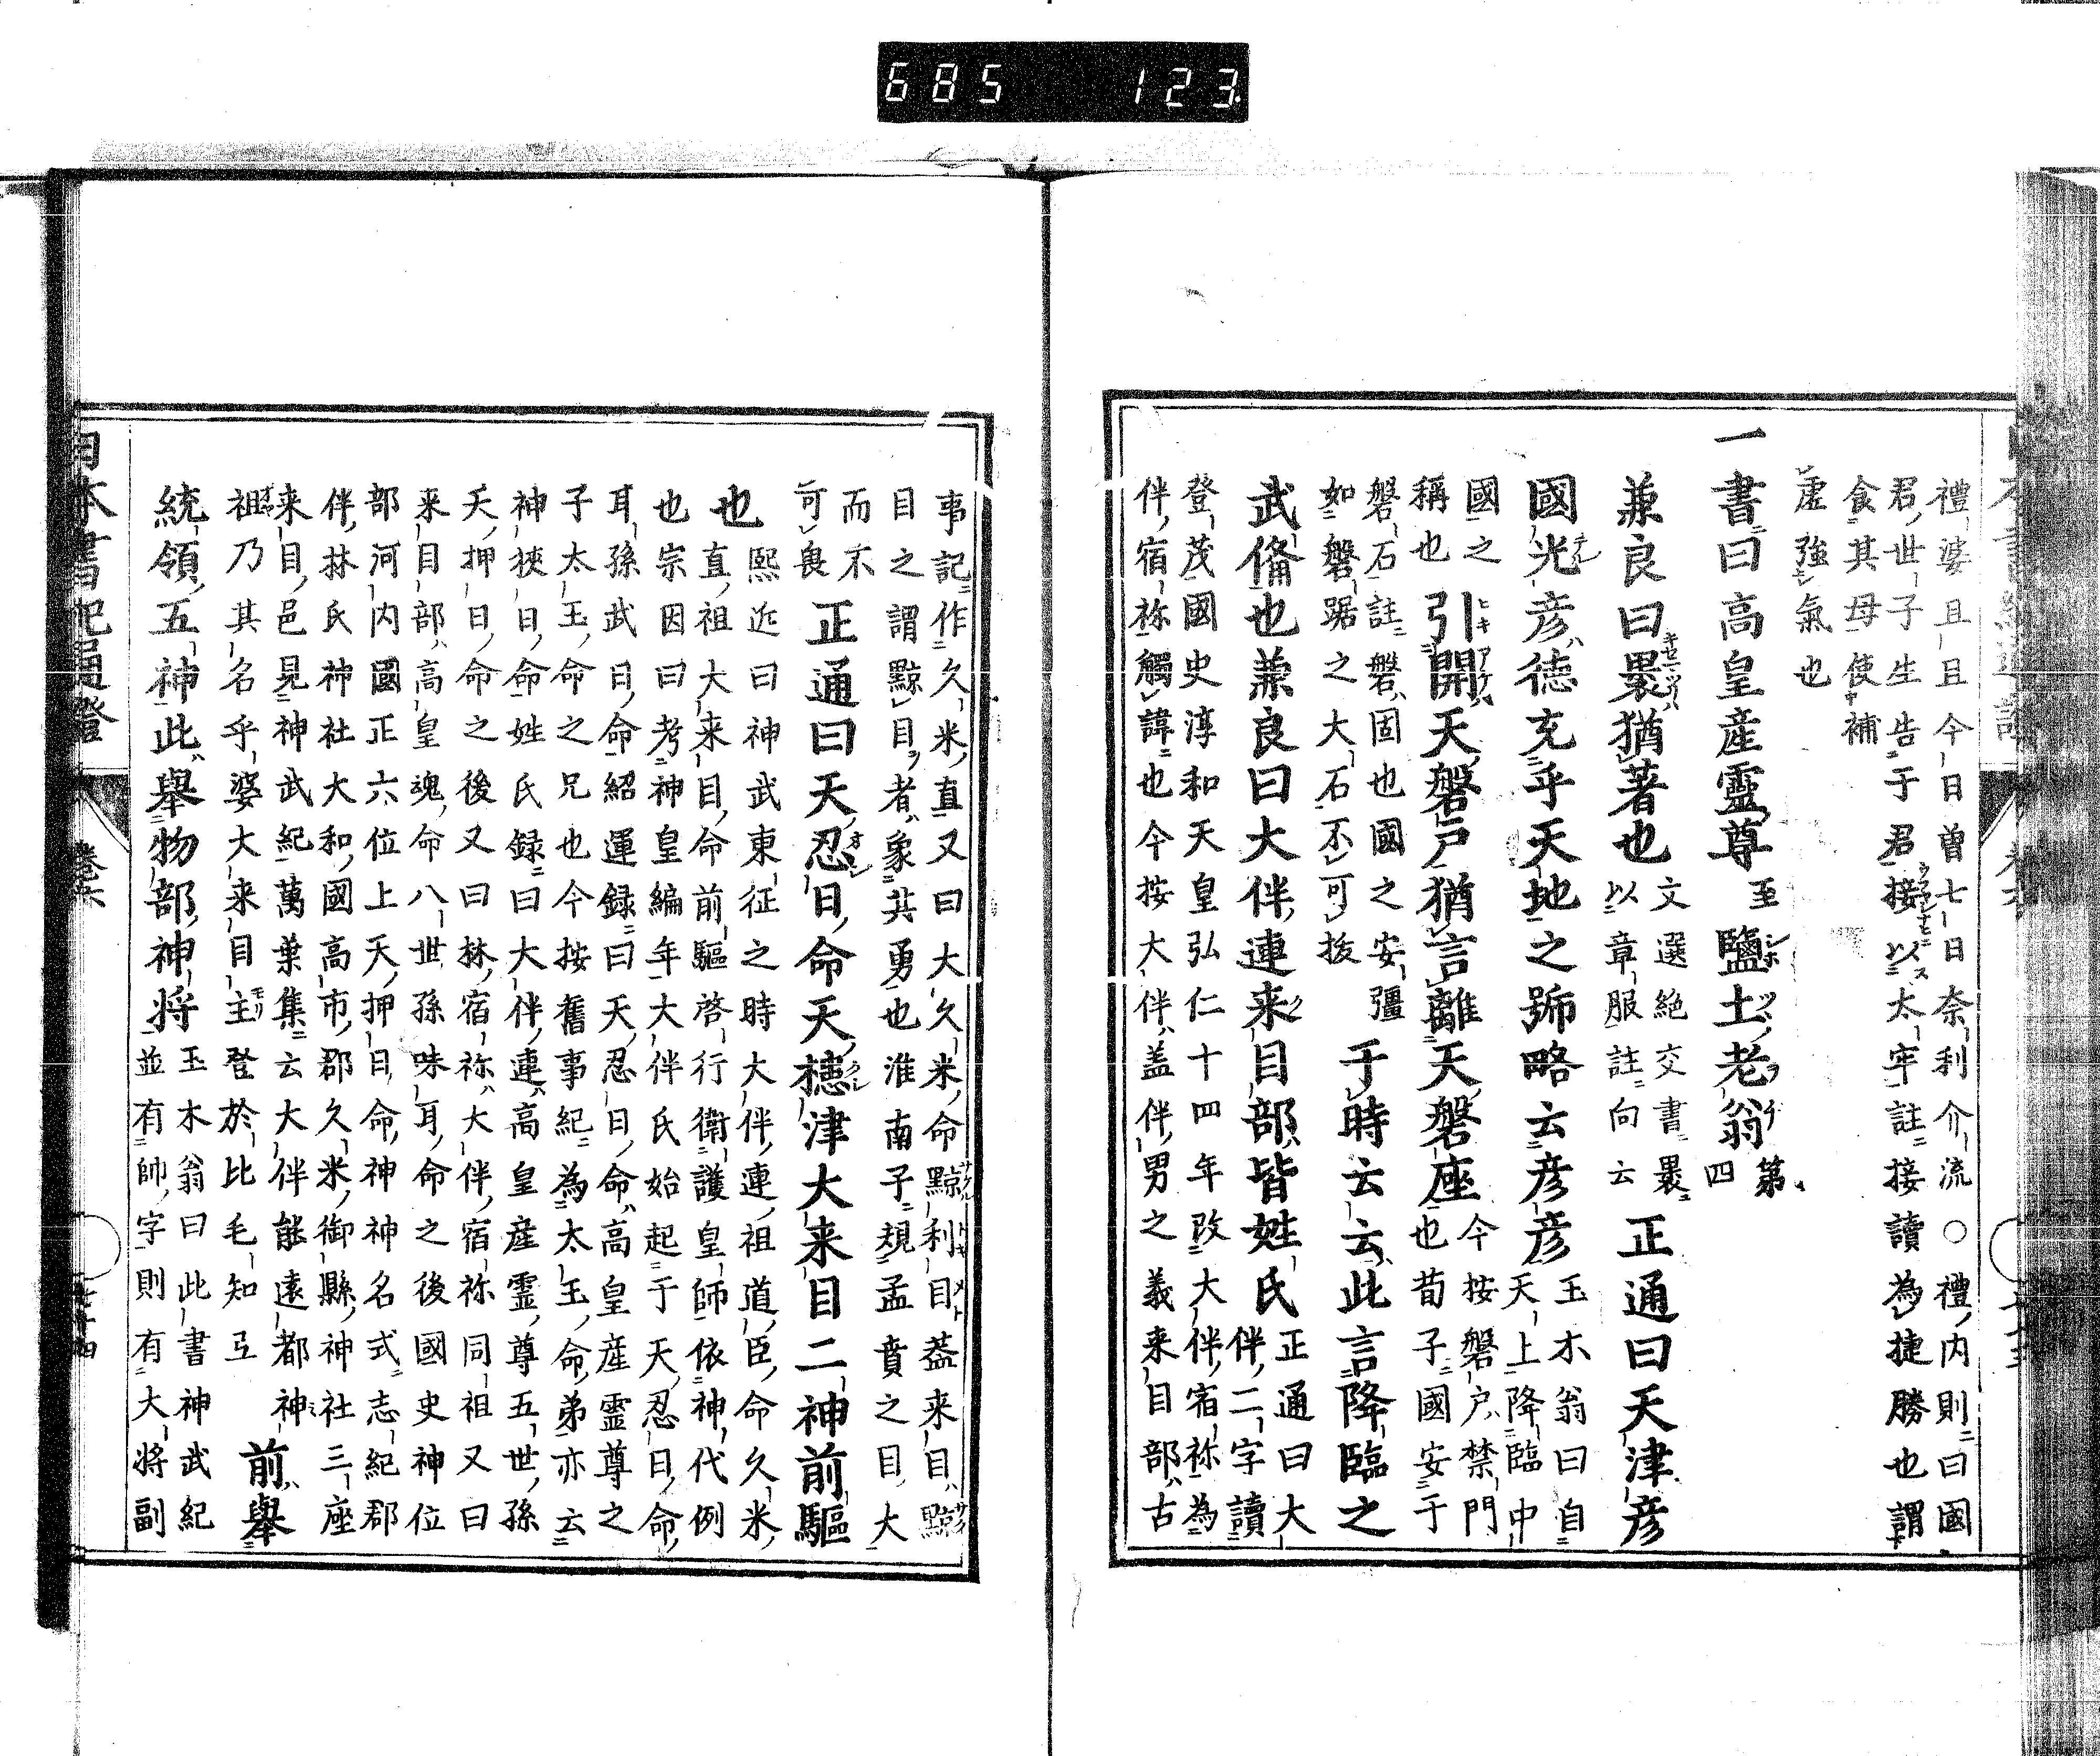 685 123
禮婆且且今日曽七日奈利介流○禮内則曰國
君世子生告于君接以太牢註接讀為捷勝也謂
食其母使補
虚強氣也
一書曰高皇産靈尊至鹽土老翁第四
兼良曰褁猶著也文選絶交書褁以章服註向云正通曰天津彦
國光彦徳充乎天地之號略云彦彦玉木翁曰自天上降臨中
國之稱也引開天磐戸猶言離天磐座今按磐戸禁門也荀子國安于
磐石註磐固也國之安彊如磐踞之大石不可拔于時云云此言降臨之
武偹也兼良曰大伴連来目部皆姓氏正通曰大伴二字讀
登茂國史淳和天皇弘仁十四年改大伴宿祢為
伴宿祢觸諱也今按大伴盖伴男之義来目部古
事記作久米直又曰大久米命黥利目葢来目黥
目之謂黥目者象其勇也淮南子規孟賁之目大
而不可畏正通曰天忍日命天槵津大来目二神前驅
也熙近曰神武東征之時大伴連祖道臣命久米
直祖大来目命前驅啓行衛護皇師依神代例
也宗因曰考神皇編年大伴氏始起于天忍日命
耳孫武日命紹運録曰天忍日命高皇産靈尊之
子太玉命之兄也今按舊事紀為太玉命弟亦云
神狹日命姓氏録曰大伴連高皇産霊尊五世孫
天押日命之後又曰林宿祢大伴宿祢同祖又曰
来目部高皇魂命八世孫味耳命之後國史神位
部河内國正六位上天押日命神神名式志紀郡
伴林氏神社大和國高市郡久米御縣神社三座
来目邑見神武紀萬葉集云大伴能遠都神
祖乃其名乎婆大来目主登於比毛知弖前舉
統領五神此舉物部神将玉木翁曰此書神武紀並有帥字則有大将副
日本書紀通證
卷六
七十四